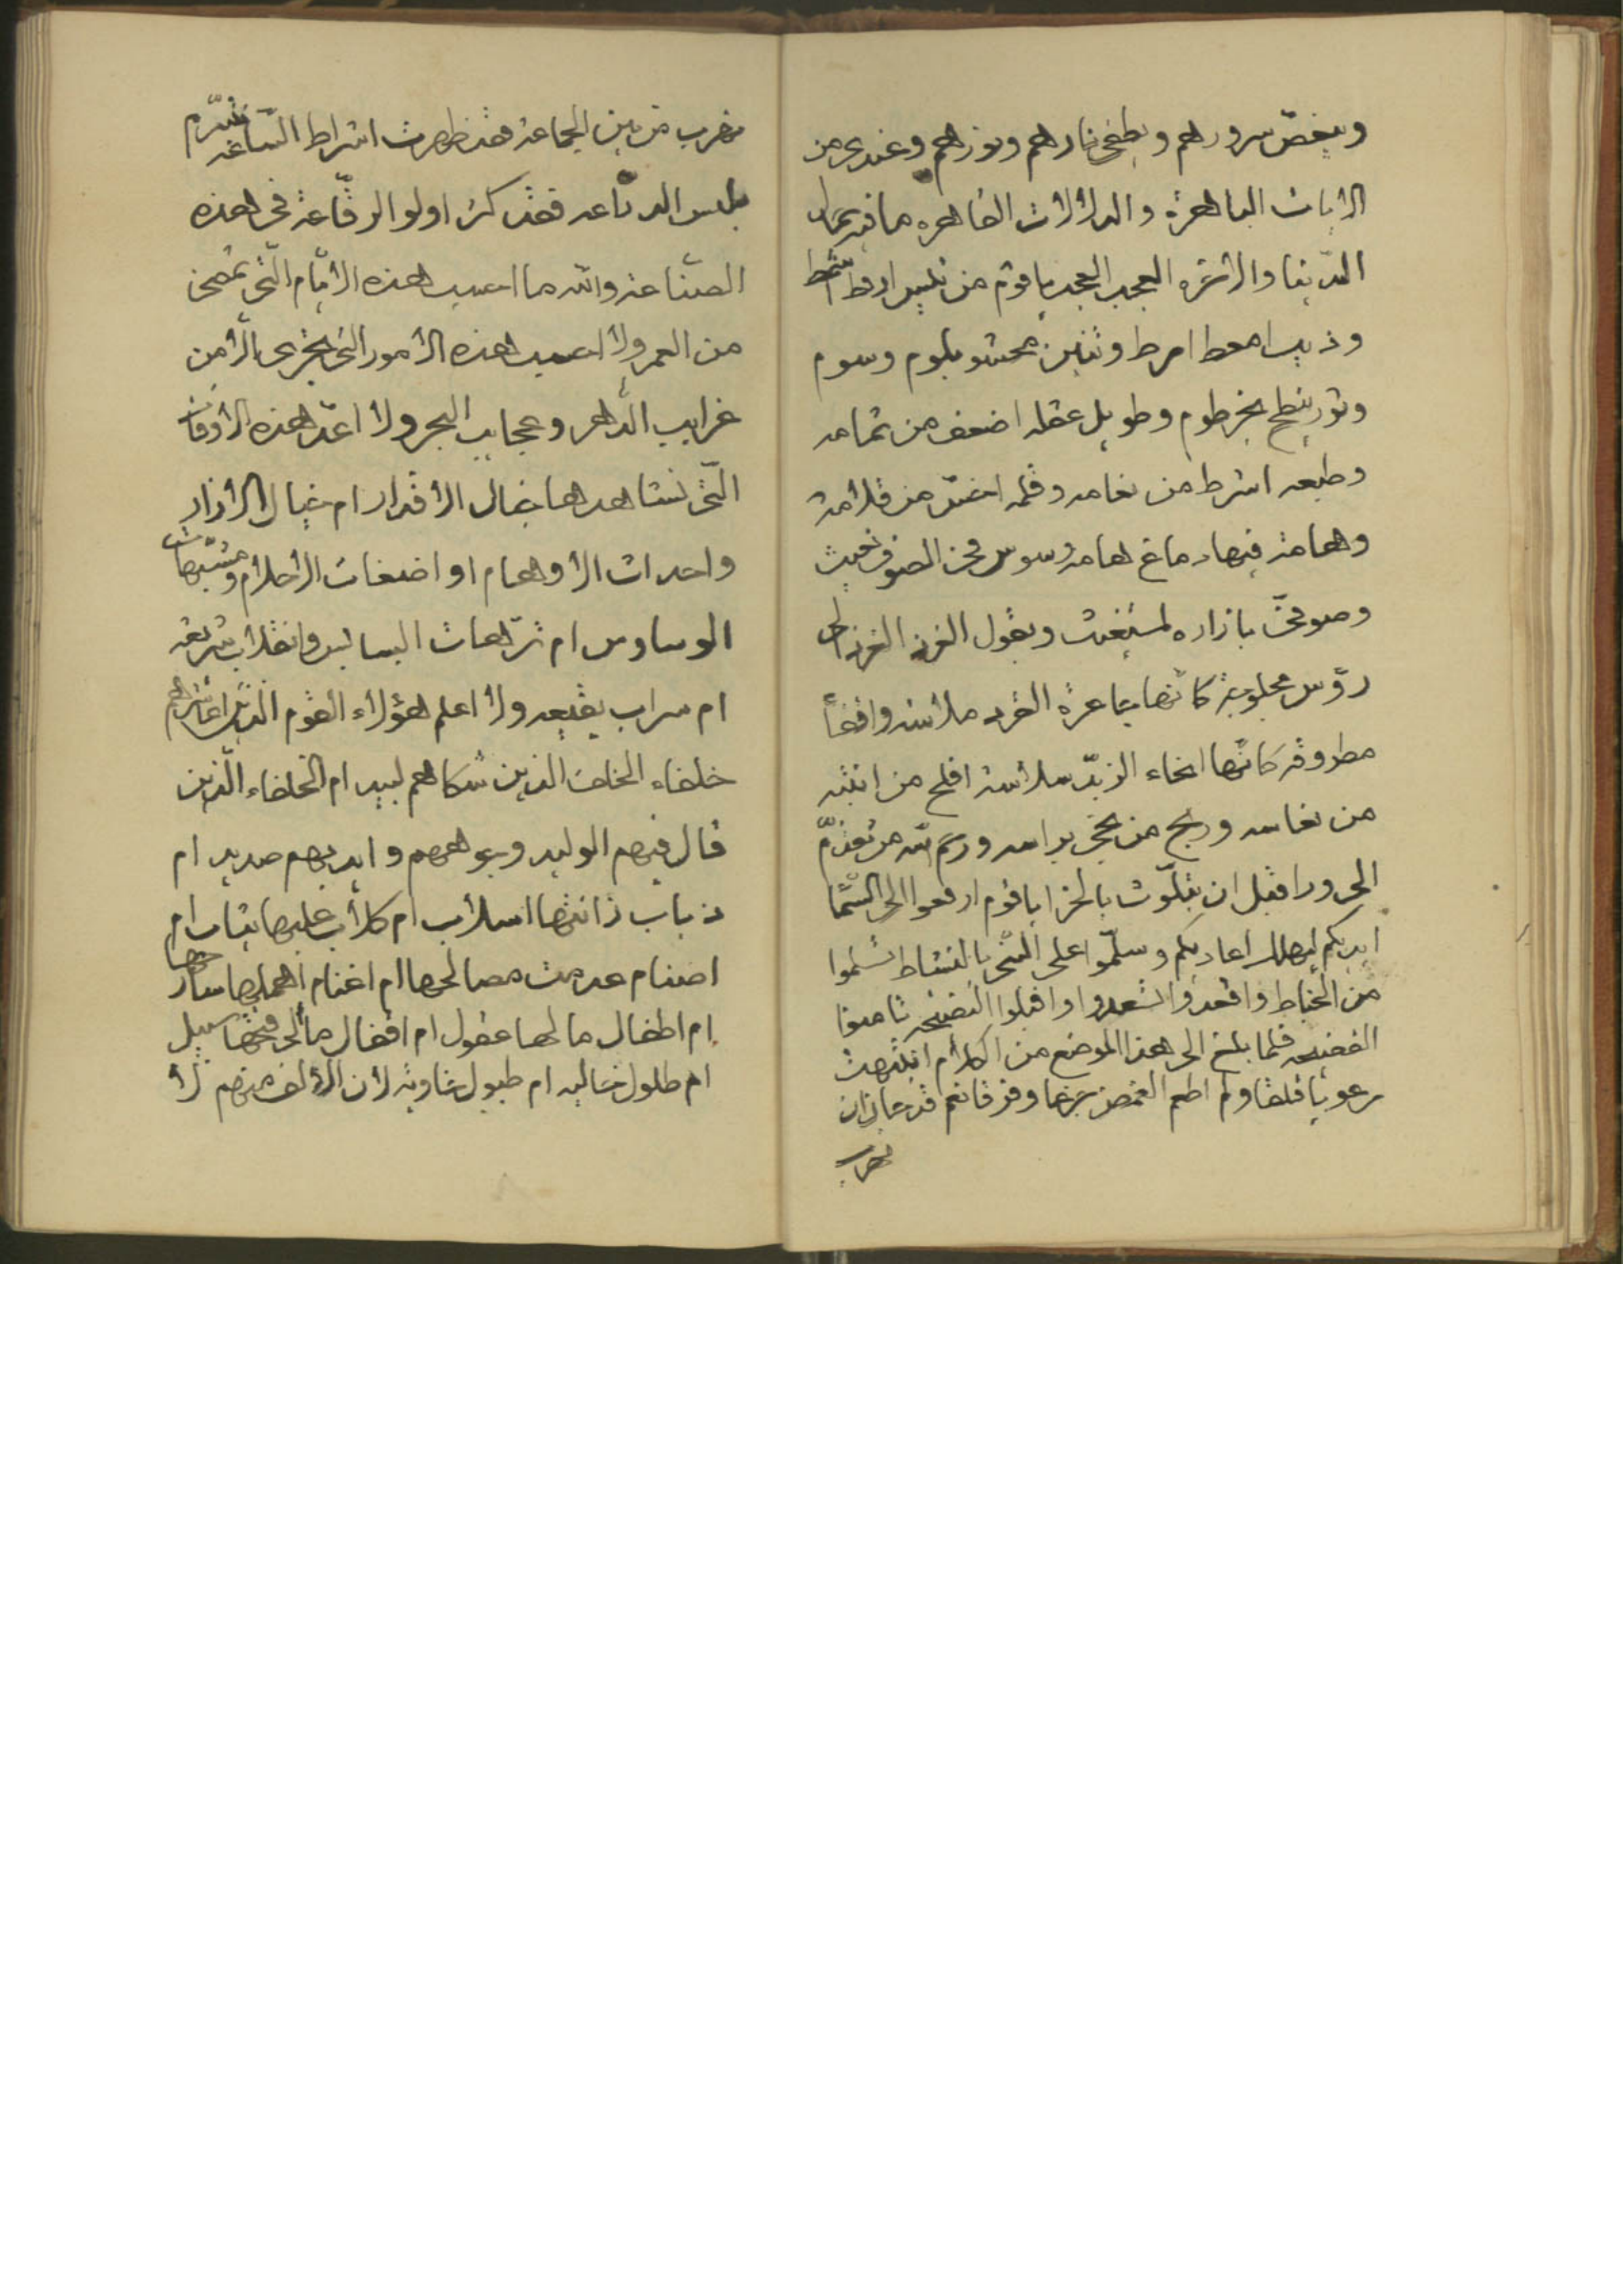 وينغص سرورهم ويطفى نارهم ونورهم وعندى من
الايات الباهرة والدلالات القاهره ما فيه عمار
الدّنيا والاخره العجب العجب ياقوم من تيس ارقط اشمط
وذيب امعط امرط وتنين محشو بلوم وسوم
وثور ينطح بخرطوم وطويل عقله اضعف من ثمامه
وطبعه اشرط من نعامه وقلمه اخسّ من قلامة
وهامة فيها دماغ هامه وسوس فى الصوف تعيث
وصوفى بازاره يستغيث ويقول الغرد الغرد الى
رؤس مجلوبة كانّها عرة القرد ملاسة واقفاً
مطروقه كانّها انحاء الزبد سلاسة افلح من انتبه
من نعاسه وربح من نجى براسه ورحم الله من تقدّم
الى ورا قبل ان يتلوّث بالخرا ياقوم ارفعوا الى السّما
ايديكم ليهلك اعاديكم وسلّموا على النّبى بالنشاط تسلموا
من الخباط واقعدوا تسعدوا واقبلوا النصيحه تامنوا
الفضيحه فلما بلغ الى هذا الموضع من الكلام انتبهت
مرعوبا قلقا ولم اطعم الغمض جزعا وفرقا نعم قد حان ان
نهرب
نهرب من بين الجماعة فقد ظهرت اشراط السّاعه
بلبس الدرّاعه فقد كثر اولو الرقّاعة فى هذه
الصنّاعة والله ما احسب هذه الايّام الّتى تمضى
من العمر ولا احسب هذه الامور التى تجرى الا من
غرايب الدّهر وعجايب البحر ولا اعدّ هذه الاوقات
الّتى نشاهدها خيال الاقدار ام خيال الازار
واحداث الاوهام او اضغاث الاحلام ومشتبهات
الوساوس ام ترّهات البسابس وانقلاب شريعه
ام سراب بقيعه ولا اعلم هؤلاء القوم الّذين اعاشرهم
خلفاء الخلف الذين شكاهم لبيد ام الخلفاء الّذين
قال فيهم الوليد وجوههم وايديهم حديد ام
ذباب زانتها اسلاب ام كلاب عليها ثياب ام
اصنام عدمت مصالحها ام اغنام اهملها سارحها
ام اطفال مالها عقول ام اقفال ما الى فتحها سبيل
ام طلول خاليه ام طبول خاويه لان الالف منهم لا